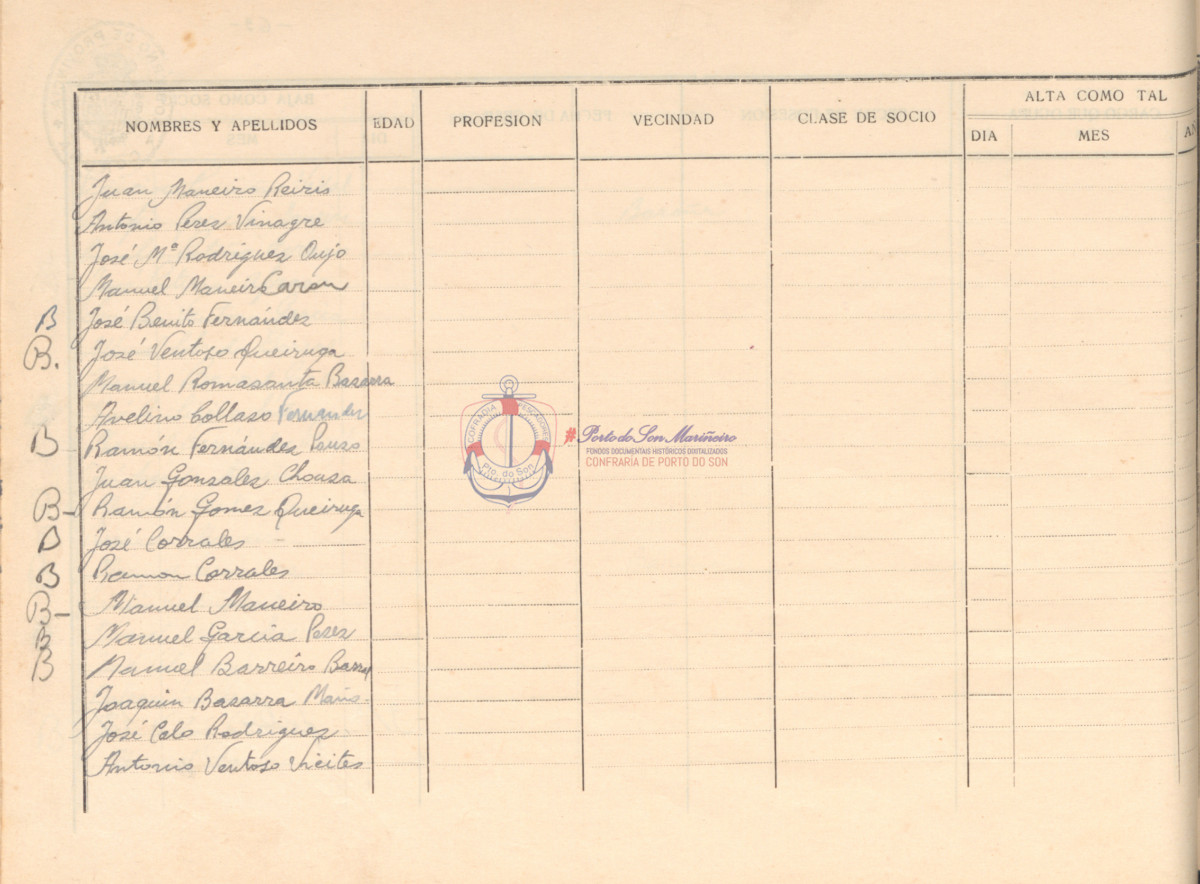 ALTA COMO TAL
NOMBRES Y APELLIDOS EDAD PROFESION VECINDAD CLASE DE SOCIO DIA MES
Juan Maneiro Reiris
Antonio Perez Vinagre
José Mª Rodriguez Oujo
Manuel Maneiro
B José Benito Fernández
B. José Ventoso Queiruga
Manuel Romasanta Basarra
Avelino Collaso Fernandez
B Ramón Fernández
Juan Gonzales Chouza
B- Ramón Gomez Queiruga
José Corrales
B Ramon Corrales
B- Manuel Maneiro
B Manuel Garcia Perez
B Manuel Barreiro Barral
Joaquin Basarra
José Celo Rodriguez
Antonio Ventoso Vieites
COFRADIA PESCADORES
Pto. do Son
#Porto do Son Mariñeiro
FONDOS DOCUMENTAIS HISTÓRICOS DIXITALIZADOS
CONFRARÍA DE PORTO DO SON